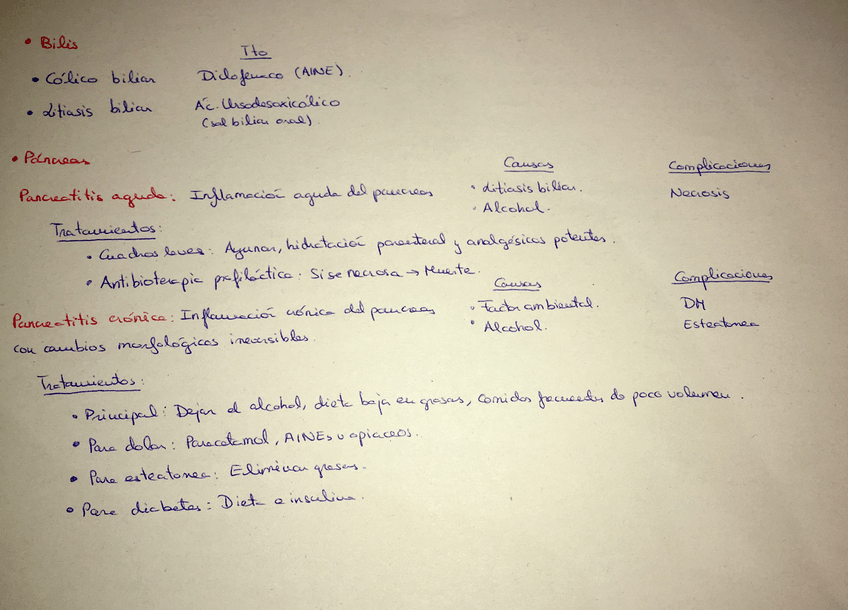 • Bilis
Tto
• Cólico biliar Diclofenaco (AINE).
• Litiasis biliar Ác. Ursodesoxicólico
(sal biliar oral).
• Páncreas
Causas Complicaciones
Pancreatitis aguda: Inflamación aguda del pancreas • Litiasis biliar. Necrosis
• Alcohol.
Tratamientos:
• Cuadros leves: Ayunar, hidratación parenteral y analgésicos potentes.
• Antibioterapia profiláctica: Si se necrosa → Muerte.
Causas Complicaciones
Pancreatitis crónica: Inflamación crónica del pancreas • Factor ambiental. DM
con cambios morfológicos ineversibles. • Alcohol. Esteatorrea
Tratamientos:
• Principal: Dejar el alcohol, dieta baja en grasas, comidas frecuentes de poco volumen.
• Para dolor: Paracetamol, AINEs u opiaceos.
• Para esteatorrea: Eliminar grasas.
• Para diabetes: Dieta e insulina.